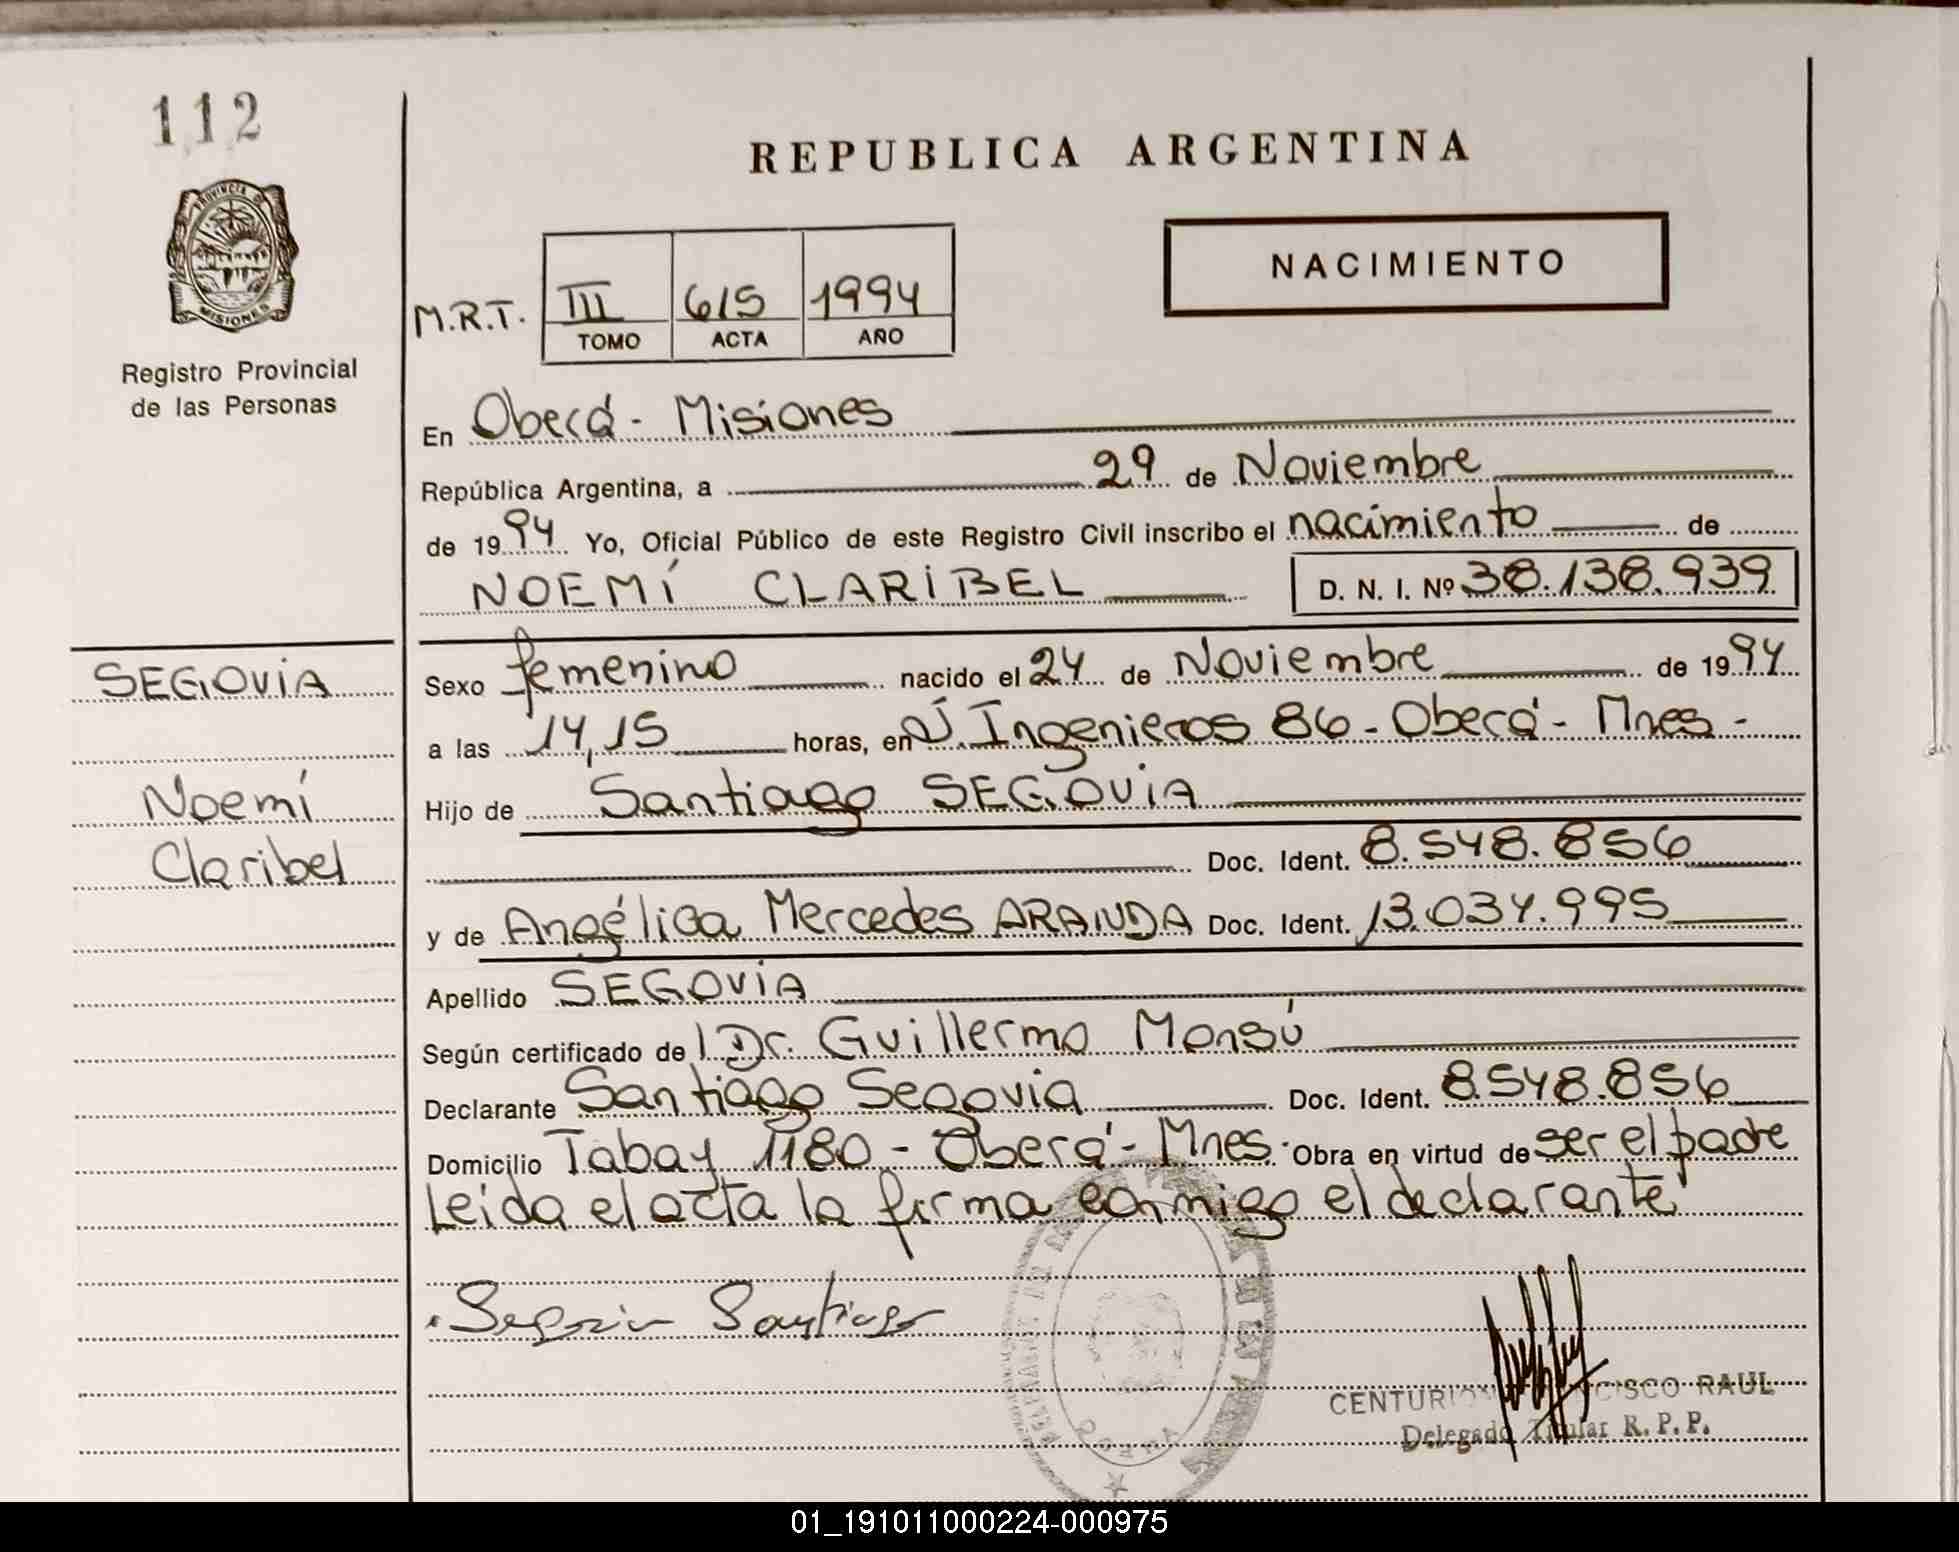 112
PROVINCIA DE
MISIONES
Registro Provincial
de las Personas
REPUBLICA ARGENTINA
NACIMIENTO
M.R.T. III 615 1994
TOMO ACTA AÑO
En Oberá - Misiones
República Argentina, a 29 de Noviembre
de 1994 Yo, Oficial Público de este Registro Civil inscribo el nacimiento de
NOEMÍ CLARIBEL D. N. I. Nº 38.138.939
SEGOVIA
Sexo femenino nacido el 24 de Noviembre de 1994
a las 14,15 horas, en J. Ingenieros 86 - Oberá - Mnes -
Noemí
Hijo de Santiago SEGOVIA
Claribel
Doc. Ident. 8.548.856
y de Angélica Mercedes ARANDA Doc. Ident. 13.034.995
Apellido SEGOVIA
Según certificado de Dr. Guillermo Monsú
Declarante Santiago Segovia Doc. Ident. 8.548.856
Domicilio Tabay 1180 - Oberá - Mnes. Obra en virtud de ser el padre
Leida el acta la firma conmigo el declarante
Segovia Santiago
CENTURION FRANCISCO RAUL
Delegado Titular R. P. P.
01_191011000224-000975